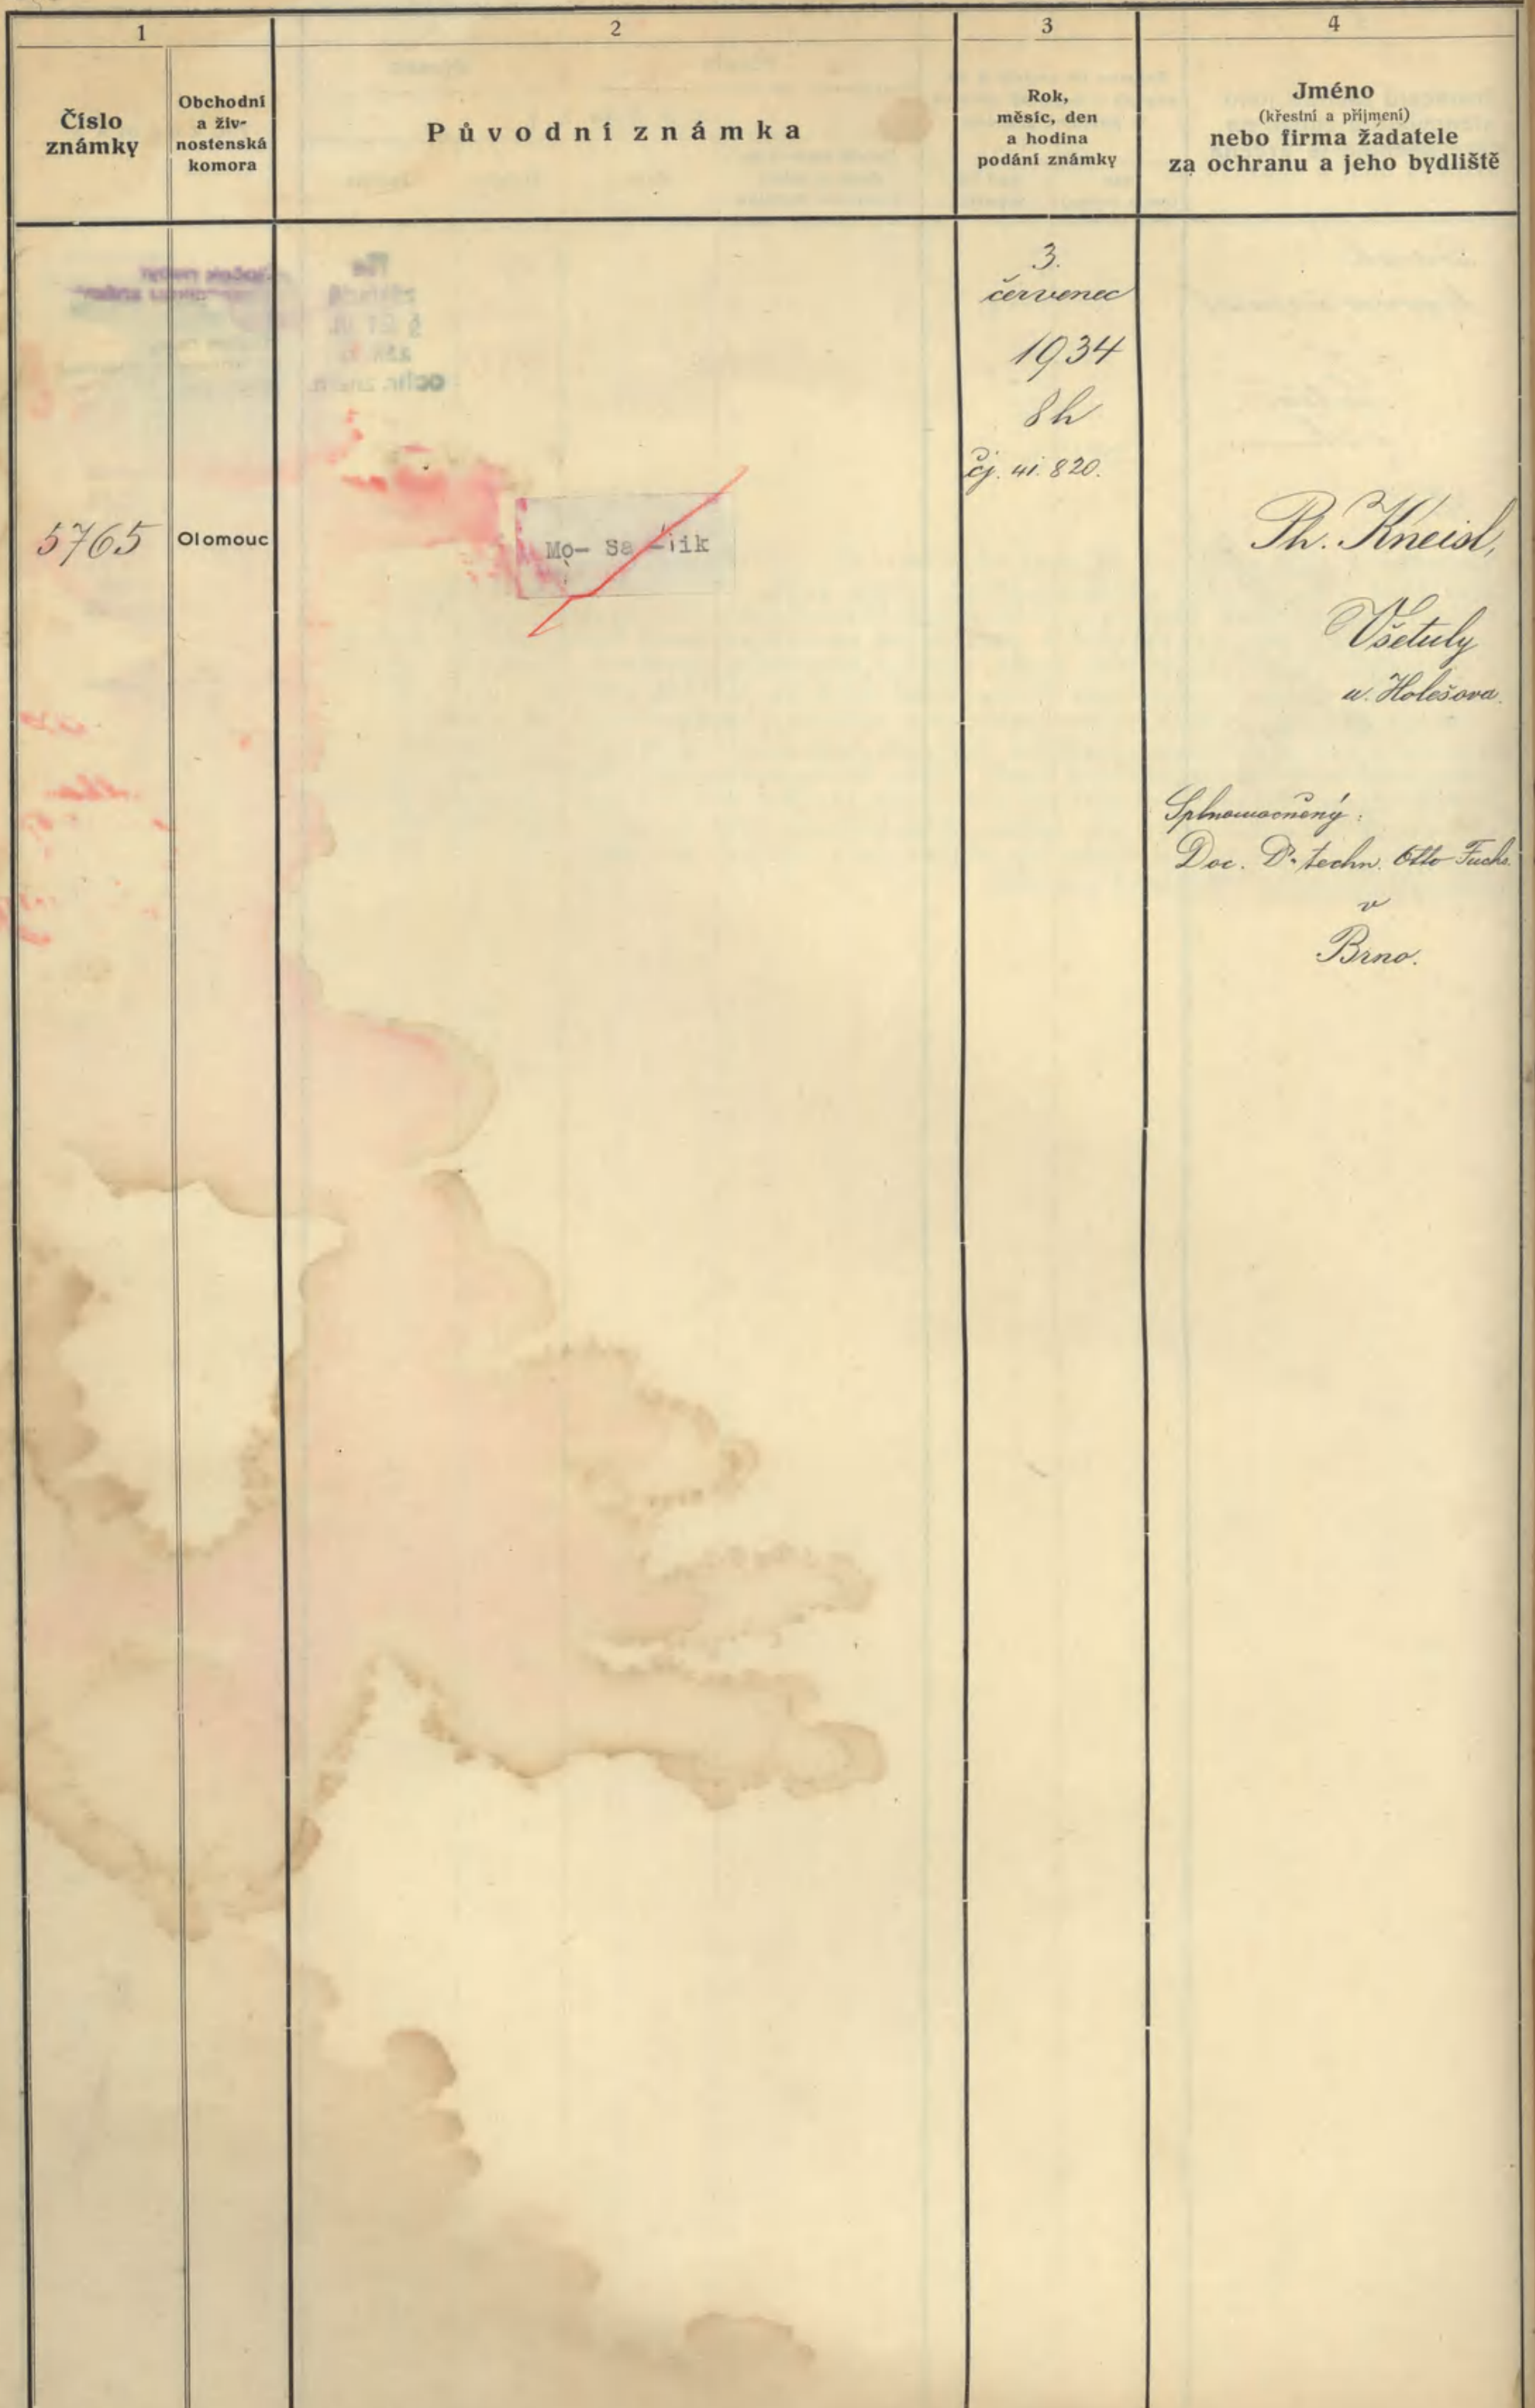 1
2
3
4
Číslo
známky
Obchodní
a živ-
nostenská
komora
Původní známka
Rok,
měsíc, den
a hodina
podání známky
Jméno
(křestní a příjmení)
nebo firma žadatele
za ochranu a jeho bydliště
3.
červenec
1934
8h
čj. 41.820.
5765
Olomouc
Mo- Sa
ik
Ph. Kneisl,
Všetuly
u. Holešova.
Splnomocněný:
Doc. Dr. techn. Otto Fuchs.
v
Brno.